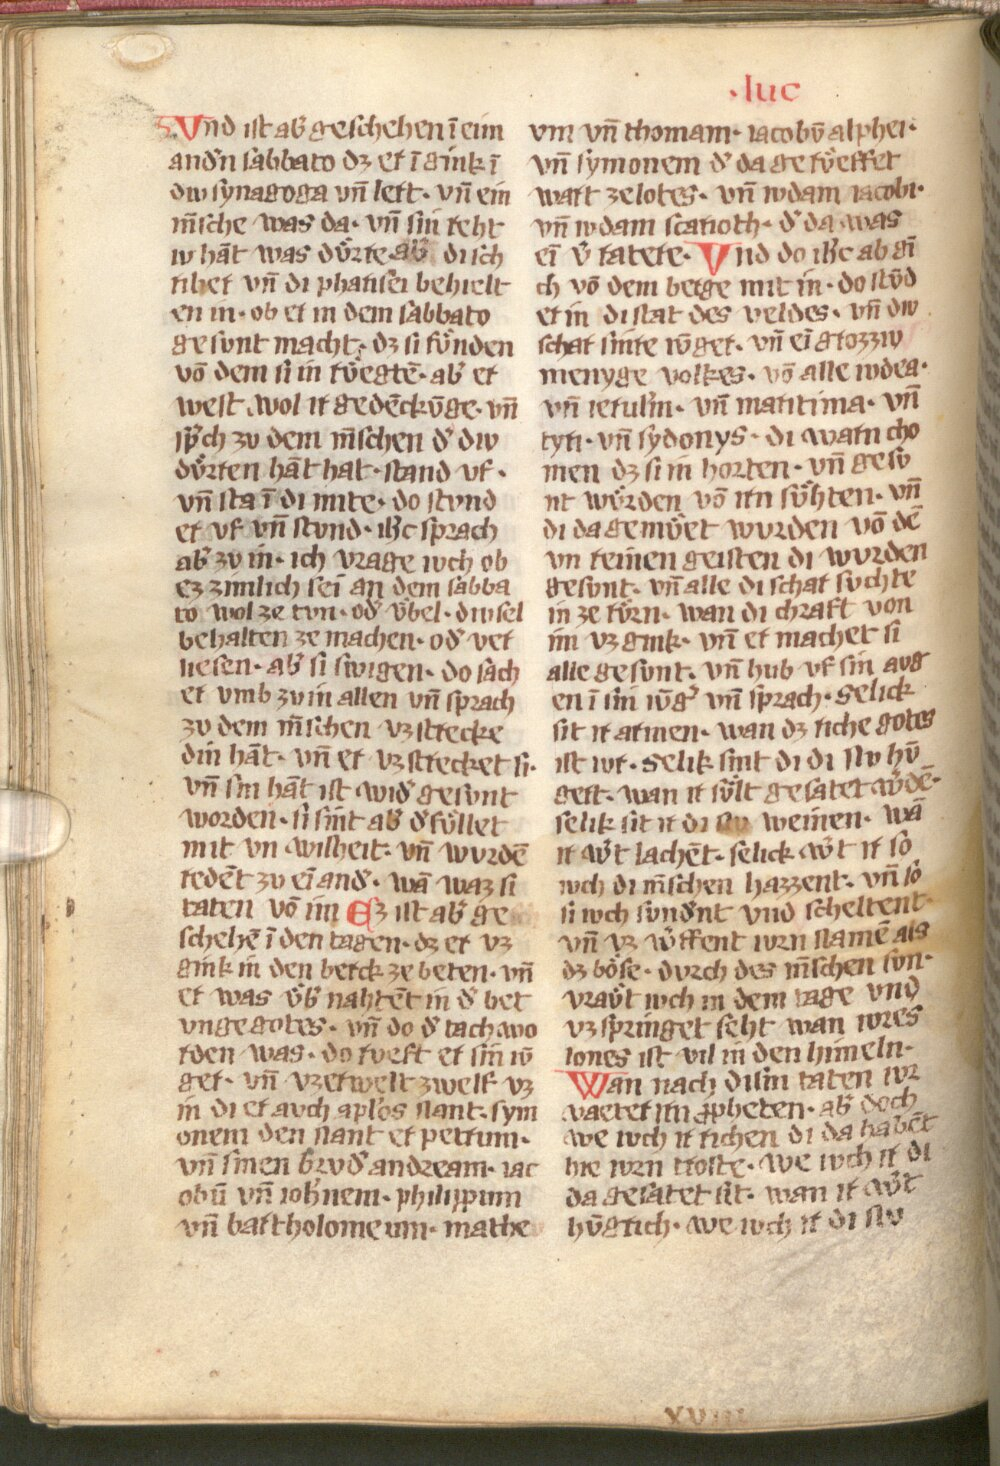 ·luc
Vnd ist ab͛ geschehen ī eim
and͛n sabbato dz er ī gink ī
diu synagoga vn̄ lert· vn̄ ein
m̄sche was da· vn̄ sin reht
iv hāt was dv́rre· ab͛ di sch
riber vn̄ di pharisei behielt
en in· ob er in dem sabbato
gesvnt macht· dz si fv́nden
vō dem si in rv́egtē· ab͛ er
west wol ir gedēckv̄ge· vn̄
sp͛ch zv dem m̄schen d͛ div
dv́rren hāt hat· stand vf·
vn̄ sta ī di mite· do stvnd
er vf vn̄ stvnd· ih̄c sprach
ab͛ zv in· ich vrage ivch ob
ez zimlich sei an dem sabba
to wol ze tvn· od͛ v́bel· div sel
behalten ze machen· od͛ ver
liesen· ab͛ si swigen· do sach
er vmb zv in allen vn̄ sprach
zv dem m̄schen vz strecke
din hāt· vn̄ er vz strecket si·
vn̄ sin hāt ist wid͛ gesvnt
worden· si sint ab͛ d͛fv́llet
mit vn wisheit· vn̄ wvrdē
redēt zv eī and͛· wā waz si
taten vō im Ez ist ab͛ ge
schehē ī den tagen· dz er vz
gink in den berck ze beten· vn̄
er was v́b͛ nahtēt in d͛ bet
vnge gotes· vn̄ do d͛ tach wo
rden was· do rveft er sin iv̄
ger· vn̄ vz erwelt zwelf vz
in di er avch apl̄os nant· sym
onem den nant er petrum·
vn̄ sinen brvd͛ andream· iac
obū vn̄ ioh̄nem· philippum
vn̄ bartholomeum· mathe
vm vn̄ thomam· iacobū alphei·
vn̄ symonem d͛ da gerv́effet
wart zelotes· vn̄ ivdam iacobi·
vn̄ ivdam scarioth· d͛ da was
eī v͛ratere· Vnd do ih̄c ab gī
ch vō dem berge mit in· do stv̄d
er in di stat des veldes· vn̄ div
schar sinre iv̄ger· vn̄ eī grozziv
menyge volkes· vō alle ivdea·
vn̄ ierusl̄m· vn̄ maritima· vn̄
tyri· vn̄ sydonys· di warn cho
men dz si in horten· vn̄ gesv
nt wv́rden vō irn sv́hten· vn̄
di da gemv́et wurden vō dē
vn reinen geisten di wurden
gesvnt· vn̄ alle di schar svchte
in ze rv́rn· wan di chraft von
im vz gink· vn̄ er machet si
alle gesvnt· vn̄ hub vf sin avg
en ī sin iv̄g͛ vn̄ sprach· selick
sit ir armen· wan dz riche gotes
ist iwr· selik sint di di nv hv̄
gert· wan ir sv́lt gesatet w͛dē·
selik sit ir di nv weinen· wā
ir w͛t lachēt· selick w͛t ir so
ivch di m̄schen hazzent· vn̄ so
si ivch svnd͛nt vnd scheltent·
vn̄ vz w͛ffent iwrn namē als
dz böse· dvrch des m̄schen svn·
vravt ivch in dem tage vnd
vz springet seht wan iwres
lones ist vil in den himeln·
Wan nach disn̄ taten iwr
vaeter irn ꝓpheten· ab͛ doch
we ivch ir richen di da habēt
hie iwrn troste· We ivch ir di
da gesatet sit· wan ir w͛t
hv̄grich· we ivch ir di nv
XVIIII